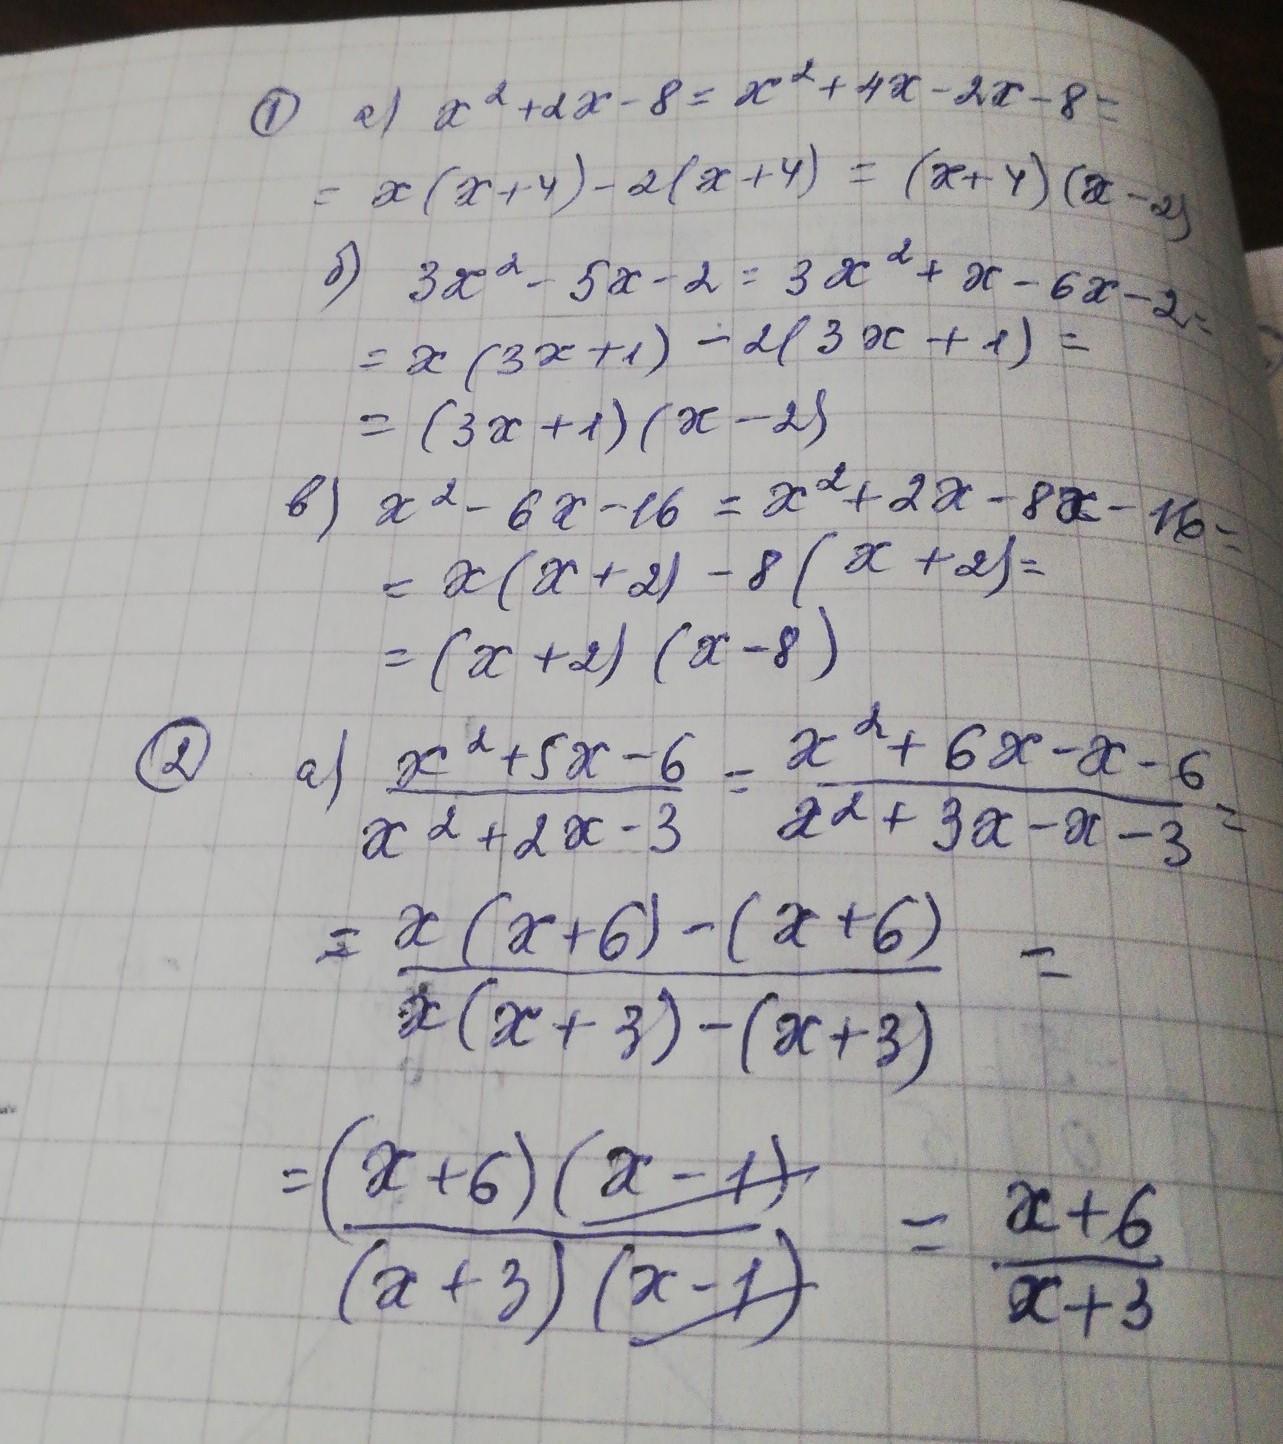 ① а) x² + 2x - 8 = x² + 4x - 2x - 8 =
= x(x+4) - 2(x+4) = (x+4)(x-2)
б) 3x² - 5x - 2 = 3x² + x - 6x - 2 =
= x(3x+1) - 2(3x+1) =
= (3x+1)(x-2)
в) x² - 6x - 16 = x² + 2x - 8x - 16 =
= x(x+2) - 8(x+2) =
= (x+2)(x-8)
② а) (x² + 5x - 6)/(x² + 2x - 3) = (x² + 6x - x - 6)/(x² + 3x - x - 3) =
= (x(x+6) - (x+6))/(x(x+3) - (x+3)) =
= ((x+6)(x-1))/((x+3)(x-1)) = (x+6)/(x+3)